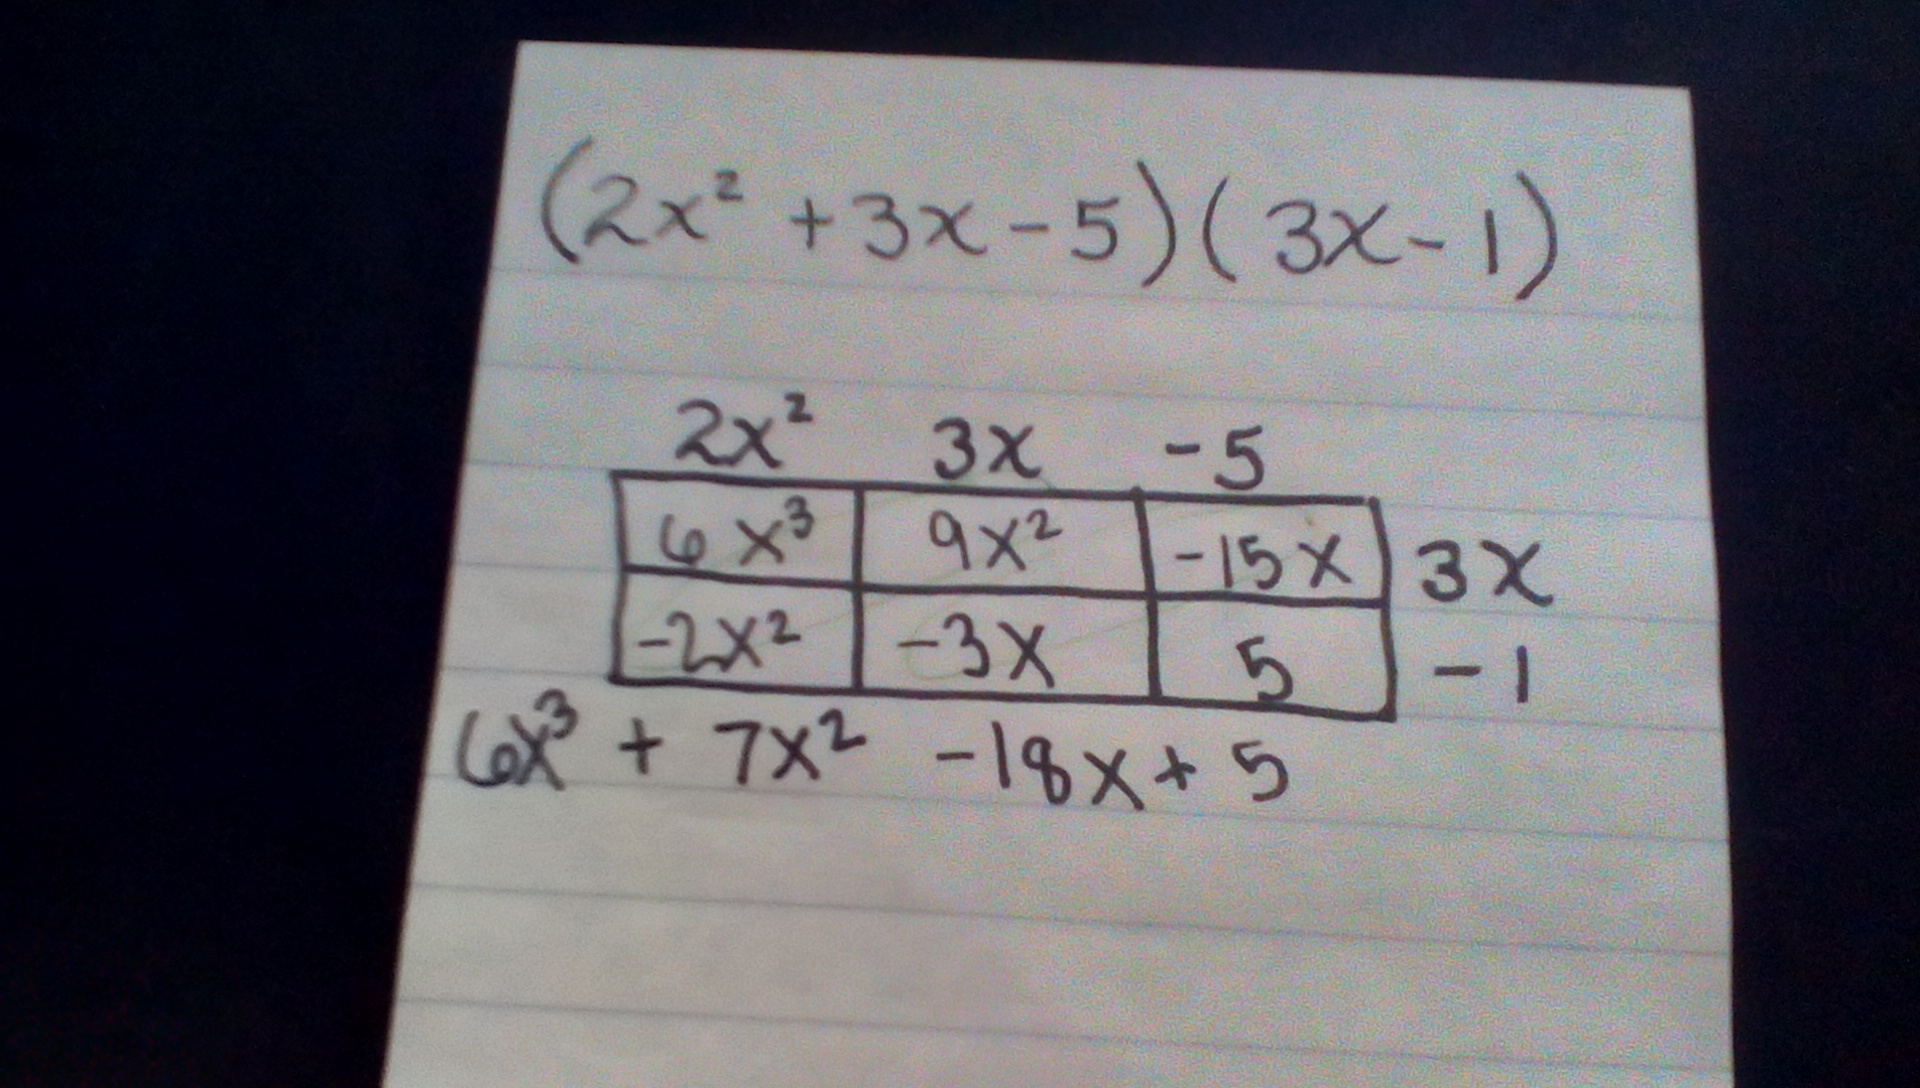 (2x² + 3x - 5)(3x - 1)
2x² 3x -5
6x³ 9x² -15x 3x
-2x² -3x 5 -1
6x³ + 7x² -18x + 5